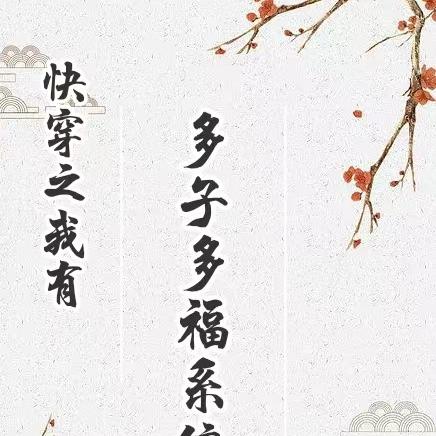 快穿之我有
多子多福系